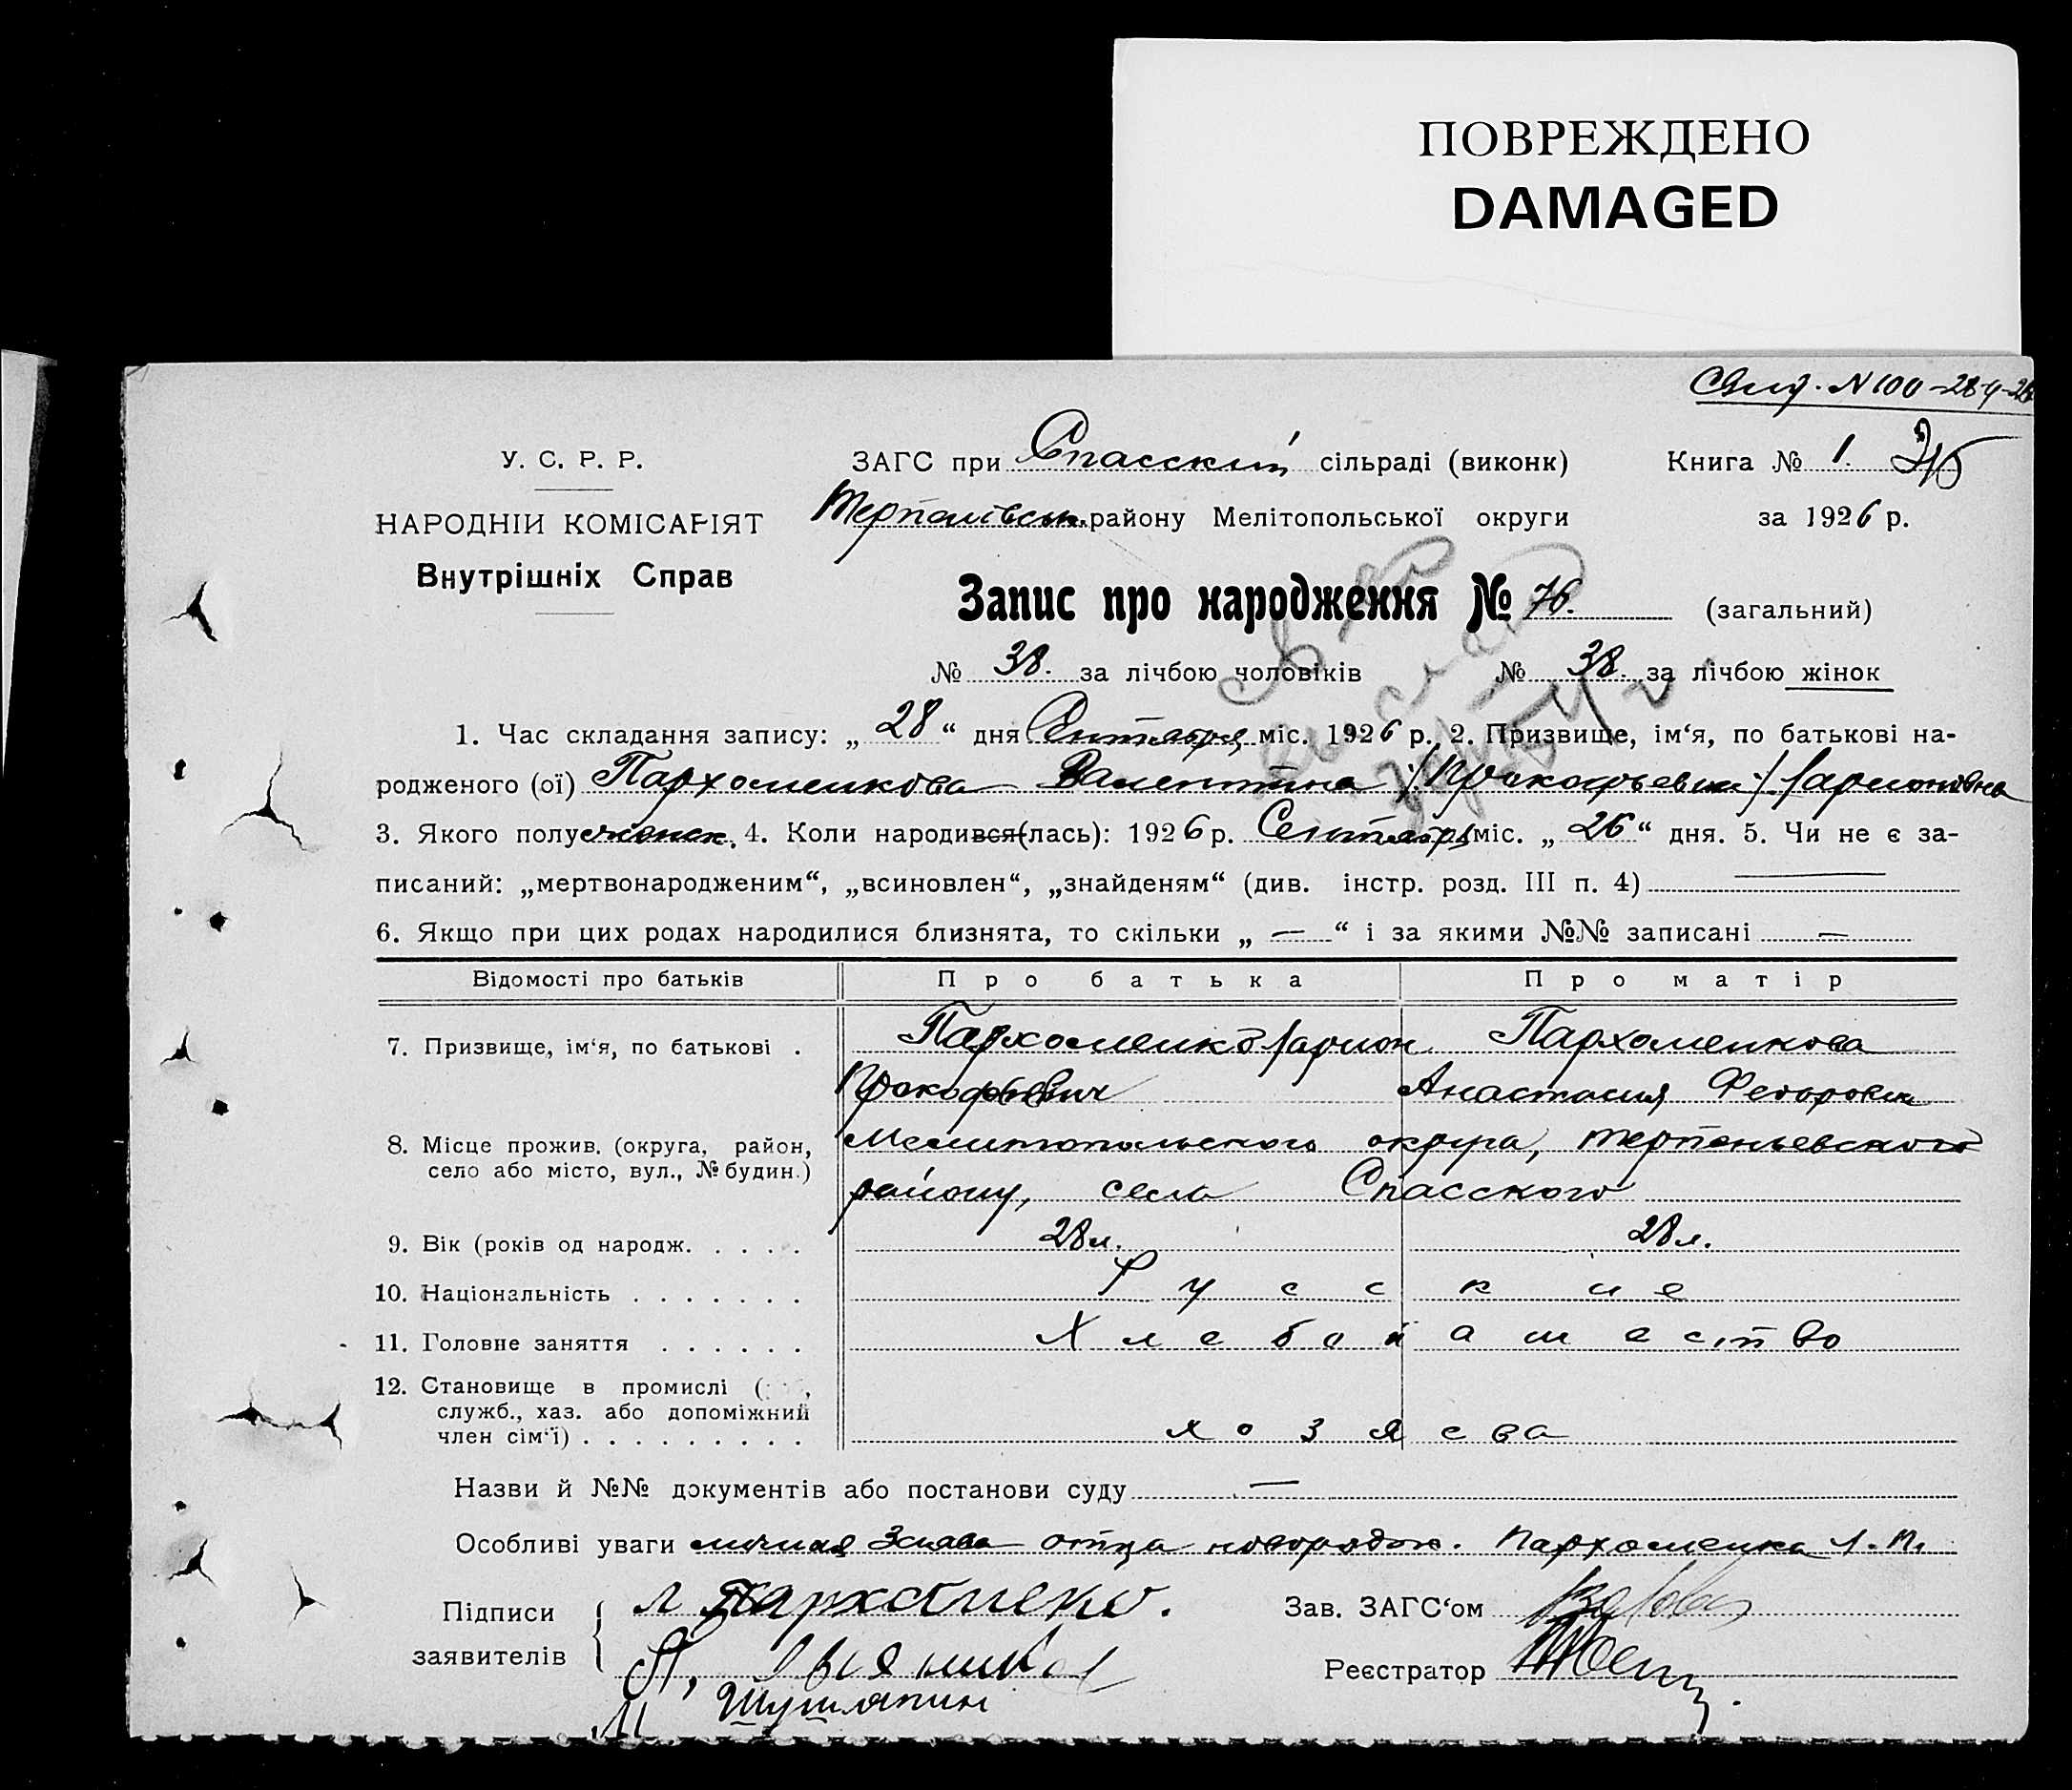 ПОВРЕЖДЕНО
DAMAGED
У. С. Р. Р.
НАРОДНІЙ КОМІСАРІЯТ
Внутрішніх Справ
ЗАГС при Спасский сільраді (виконк)
району Мелітопольської округи
Книга № 1.
за 1926 р.
Запис про народження № 76. (загальний)
№ 38. за лічбою чоловіків № 38. за лічбою жінок
1. Час складання запису: „28“ дня Сентября міс. 1926 р. 2. Призвище, ім‘я, по батькові на-
родженого (ої) Пархоменкова Валентина /Прокофьевна/ Ларионовна
3. Якого полу женск. 4. Коли народився(лась): 1926 р. Сентября міс. „26“ дня. 5. Чи не є за-
писаний: „мертвонародженим“, „всиновлен“, „знайденям“ (див. інстр. розд. III п. 4) —
6. Якщо при цих родах народилися близнята, то скільки „—“ і за якими №№ записані —
Відомості про батьків Про батька Про матір
7. Призвище, ім‘я, по батькові . Пархоменко Ларион Пархоменкова
Прокофьевич Анастасия Федоровна
8. Місце прожив. (округа, район, село або місто, вул., № будин.) Мелитопольского округа, Терпеньевского
району, села Спасского
9. Вік (років од народж. . . . . 28 л. 28 л.
10. Національність . . . . . . . Русские
11. Головне заняття . . . . . . Хлебопашество
12. Становище в промислі (
служб., хаз. або допоміжний
член сім‘ї) . . . . . . . . . хозяева
Назви й №№ документів або постанови суду —
Особливі уваги личная Заява отца новорожд. Пархоменка Л. П.
Підписи заявителів Л Пархоменко.
Зав. ЗАГС‘ом
Реєстратор
Шушляпин